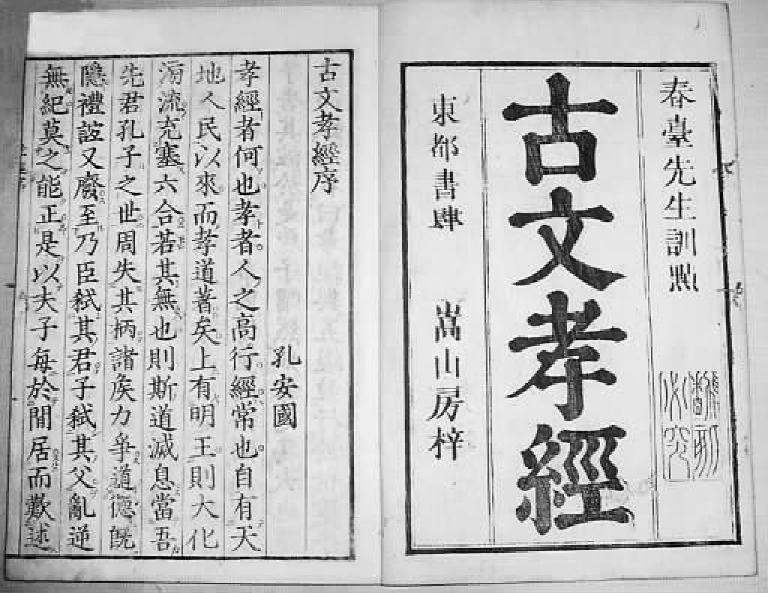 春臺先生訓點
古文孝經
東都書肆 嵩山房梓
古文孝經序
孔安國
孝經者何也孝者人之高行經常也自有天
地人民以來而孝道著矣上有明王則大化
滂流充塞六合若其無也則斯道滅息當吾
先君孔子之世周失其柄諸矦力爭道德旣
隱禮誼又廢至乃臣弑其君子弑其父亂逆
無紀莫之能正是以夫子每於閒居而歎述